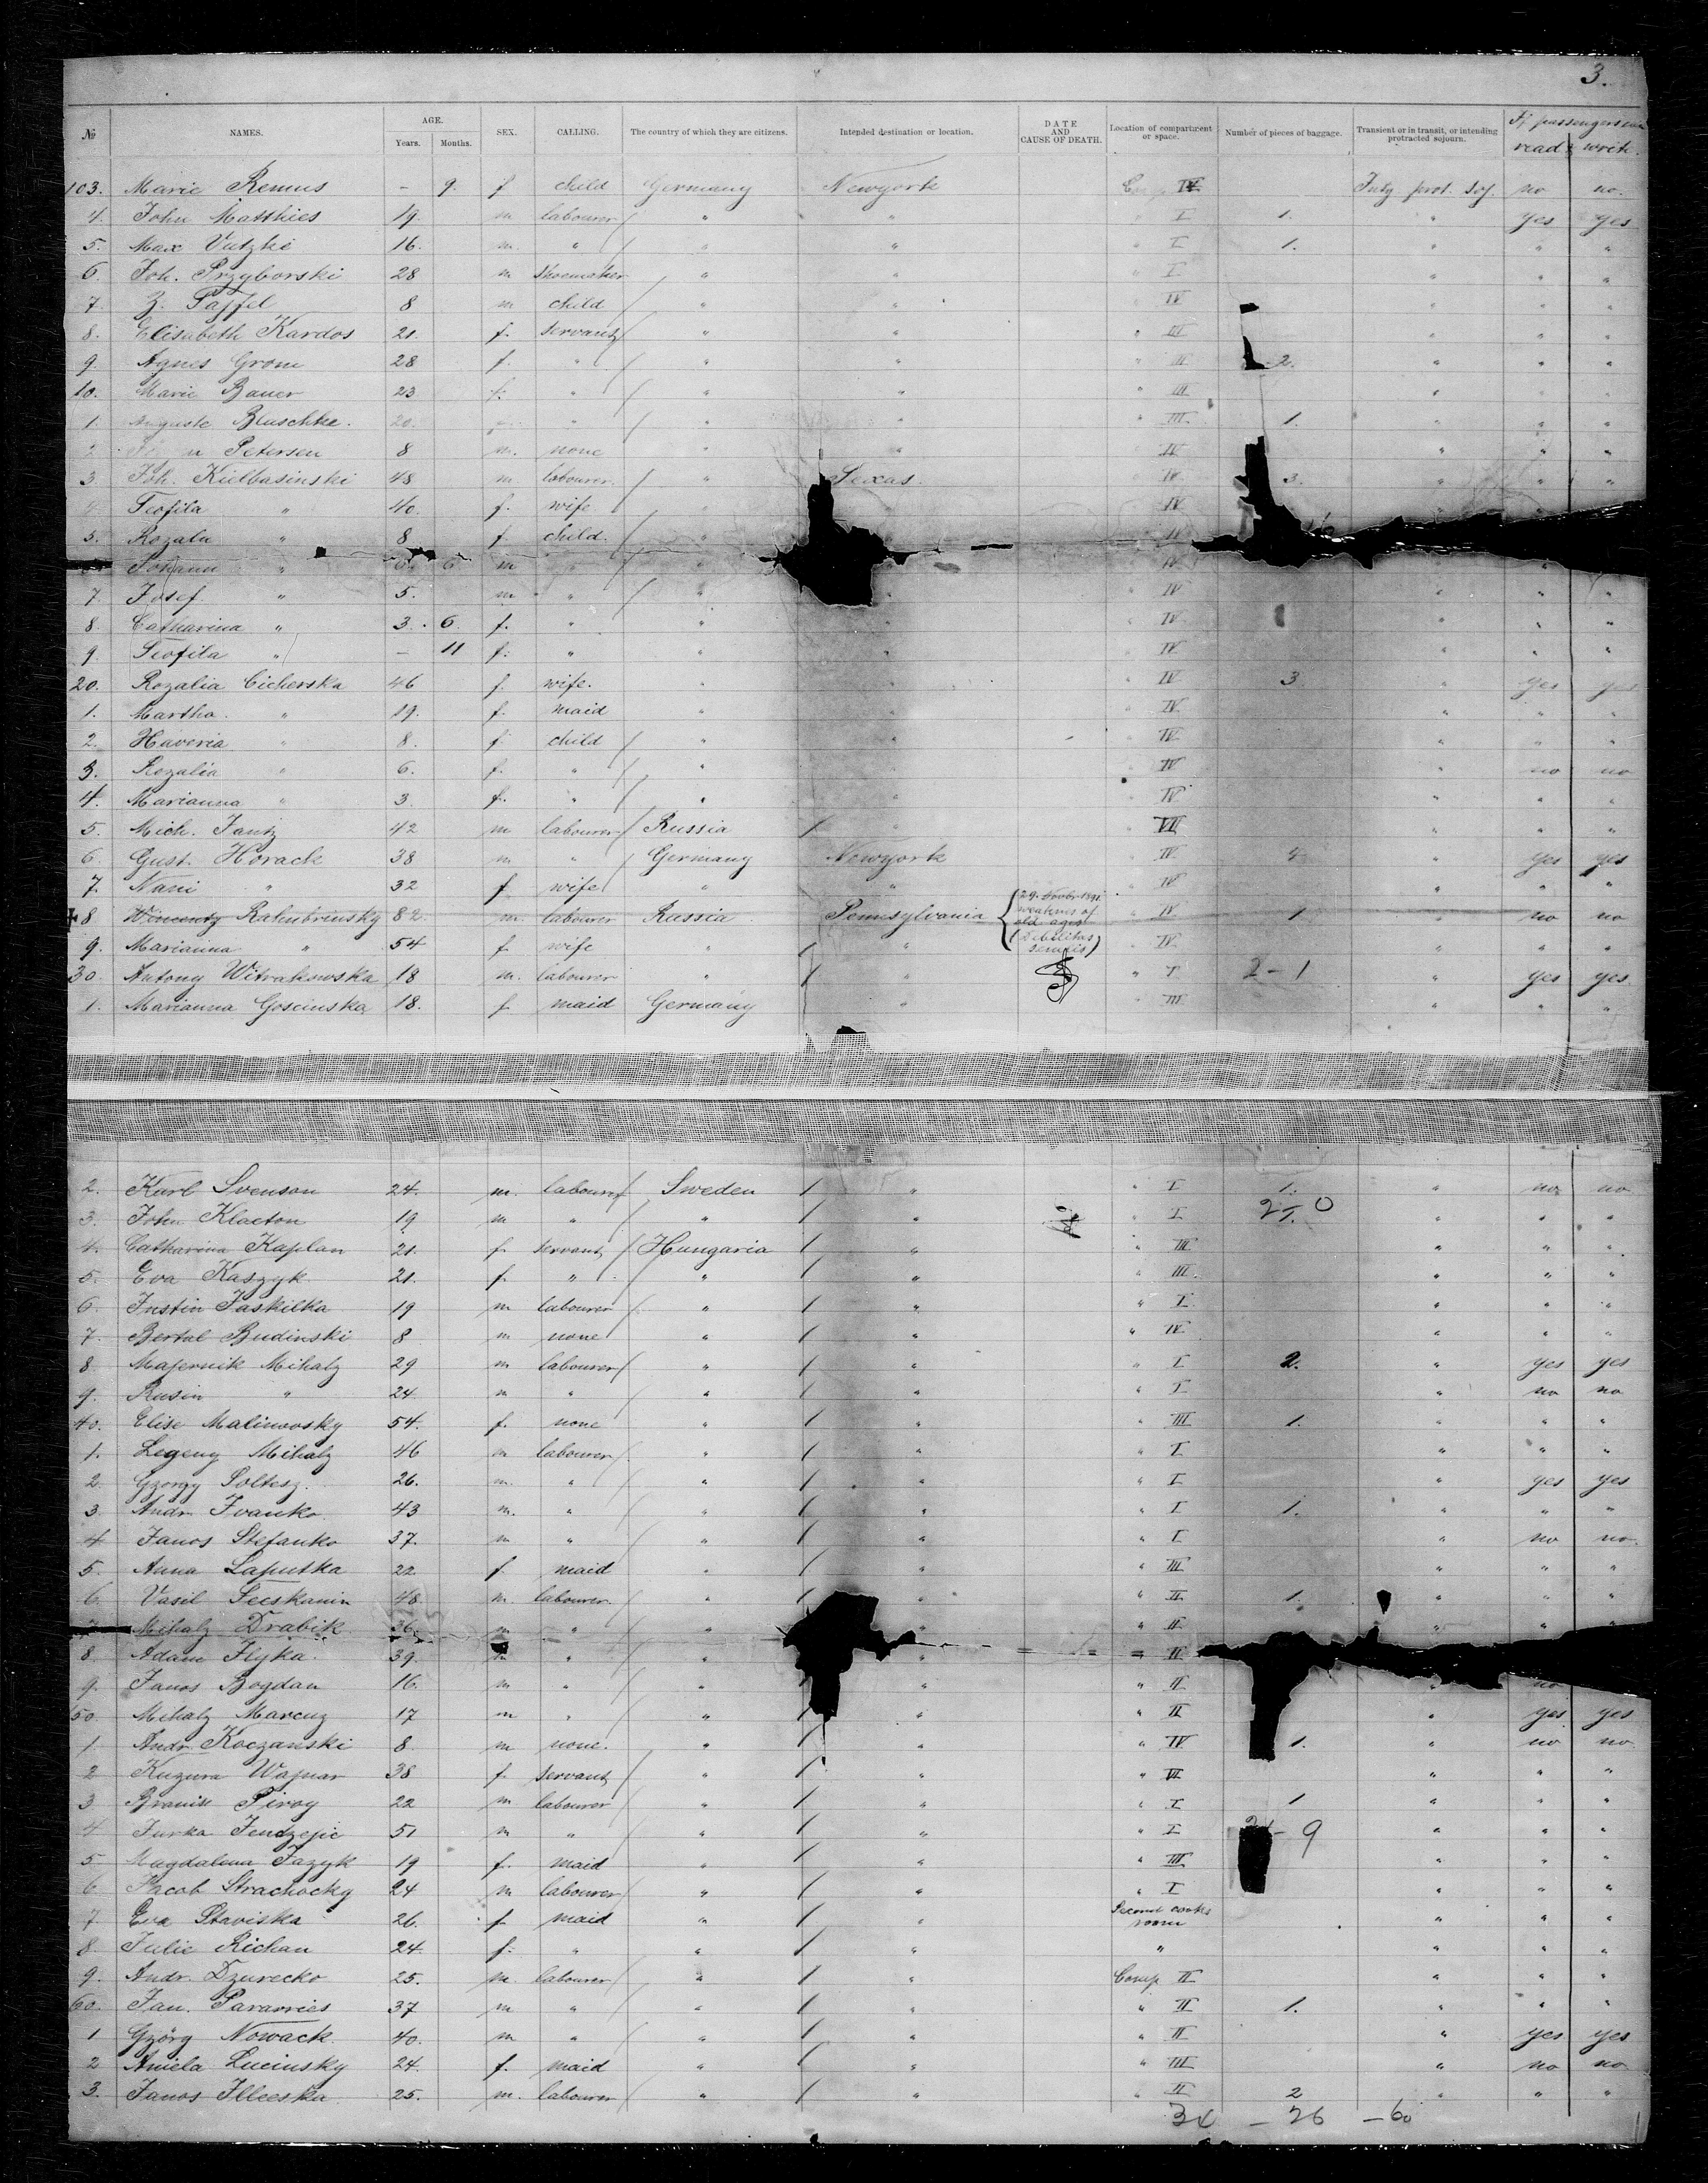 3.
№ NAMES. AGE. Years. Months. SEX. CALLING. The country of which they are citizens. Intended destination or location. DATE AND CAUSE OF DEATH. Location of compartment or space. Number of pieces of baggage. Transient or in transit, or intending protracted sojourn. If passengers can read & write.
103. Marie Remus - 9. f child Germany Newyork Comp IV Intg prot. soj. no no.
4. John Matthies 19. m labourer " " " I 1. " yes yes
5. Max Vutzki 16. m. " " " " I 1. " " "
6. Joh. Przyborski 28 m shoemaker " " " I " " "
7. Z. Paffel 8 m child " " IV " " "
8. Elisabeth Kardos 21. f. servant " " " III " " "
9. Agnes Grom 28 f. " " " " III 2. " " "
10. Marie Bauer 23 f. " " " " III " " "
1. Auguste Bluschke. 20. " " " " III 1. " " "
2. Petersen 8 m. none " " " IV " " "
3. Joh. Kielbasinski 48 m labourer. " Texas. IV 3. " " "
4. Teofila " 40. f. wife IV
5. Rozalu " 8 f. child. " IV
Johann " 6. 6 m " " IV "
7. Josef. " 5. m. " " " " IV " " "
8. Catharina " 3. 6. f. " " " " IV " " "
9. Teofila " - 11 f. " " " " IV " " "
20. Rozalia Cicherska 46 f. wife. " " " IV 3 " yes yes
1. Martha. " 19. f. maid " " " IV " " "
2. Haveria " 8. f. child " " IV " " "
3. Rozalia " 6. f. " " " IV no no
4. Marianna " 3. f. " " " " IV " " "
5. Mich. Jantz 42 m labourer Russia " VII " " "
6. Gust. Horack 38 m " Germany Newyork " IV 4 " yes yes
7. Nani " 32 f wife " " " IV " " "
8 Wincenty Rahubrinsky 82. m. labourer Russia Pennsylvania 29. Novbr 1891. weakness of old age (Debilitas senilis) " IV 1. " no no
9. Marianna " 54 f. wife " " " IV " " "
30. Antony Witrakowska 18 m. labourer " " " I 2-1 " yes yes.
1. Marianna Goscinska 18. f maid Germany " " III " " "
2. Karl Svenson 24. m. labourer Sweden " " I 1. " no no
3. John Klacton 19 m " " " " I 1. 2-0 " " "
4. Catharina Kaplan 21. f. servant Hungaria " " III " " "
5. Eva Kaszyk. 21. f. " " " " III. " " "
6. Justin Jaskilka 19 m labourer " " " I " " "
7. Bertal Budinski 8 m none " " " IV " " "
8. Majernik Mihaly 29 m labourer " " " I 2. " yes yes
9. Rusin " 24. m " " " " I " no no
40. Elise Malinovsky 54. f. none " " " III 1. " " "
1. Legeny Mihaly 46 m labourer " " I " " "
2. Gyorgy Soltesz. 26. m. " " " " I " yes yes
3. Andr. Ivanko. 43 m. " " " " I 1. " " "
4 Janos Stefanko 37. m " " " " I " no no.
5. Anna Laputka 22. f. maid " " " III " " "
6. Vasil 48. m labourer. " " II 1. " " "
Mihaly Drabik. 36. m " " " " II "
8. Adam Flyka. 39. " " " " II
9. Janos Bogdan 16. m " " " " II " no
50. Mihaly Marcuz 17 m " " " " II " yes yes
1. Andr. Koczanski 8. m none. " " " IV 1. " no no.
2 Kuzura Wajnar 38 f. servant " " " VI " " "
3 Piroy 22 m labourer " " " I 1 " " "
4 Jurka Jendzejic 51 m " " " " I - 9 " " "
5. Magdalena Jazyk 19 f. maid " " " III " " "
6. Jacob Strachocky 24 m labourer " " " I " " "
7. Eva Staviska 26. f maid " " Second cooks room " " "
8. Julie Richan 24. f. " " " " " " "
9. Andr. Dzurecko 25. m. labourer " " Comp II " " "
60. Jan. 37 m. " " " " II 1. " " "
1 György Nowack. 40. m " " " " II " yes yes
2 Aniela Lucinsky 24. f. maid " " " III " no no
3. Janos Illeeska 25. m. labourer " " " II 2 " " "
34 - 26 - 60